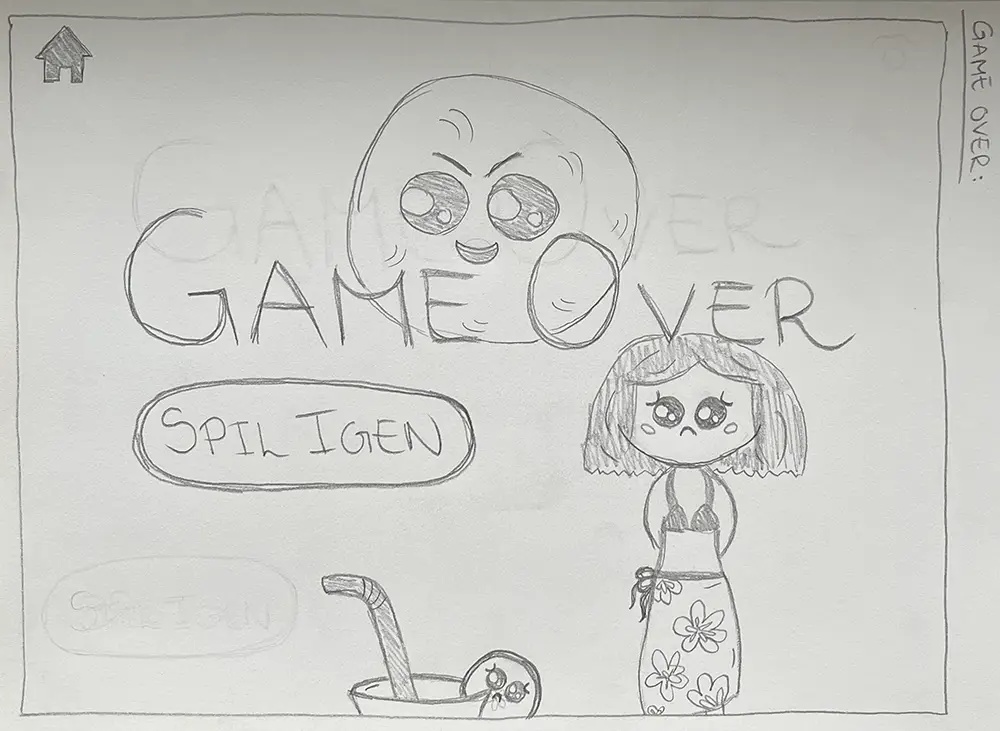 GAME OVER:
GAME OVER
GAME OVER
SPIL IGEN
SPIL IGEN